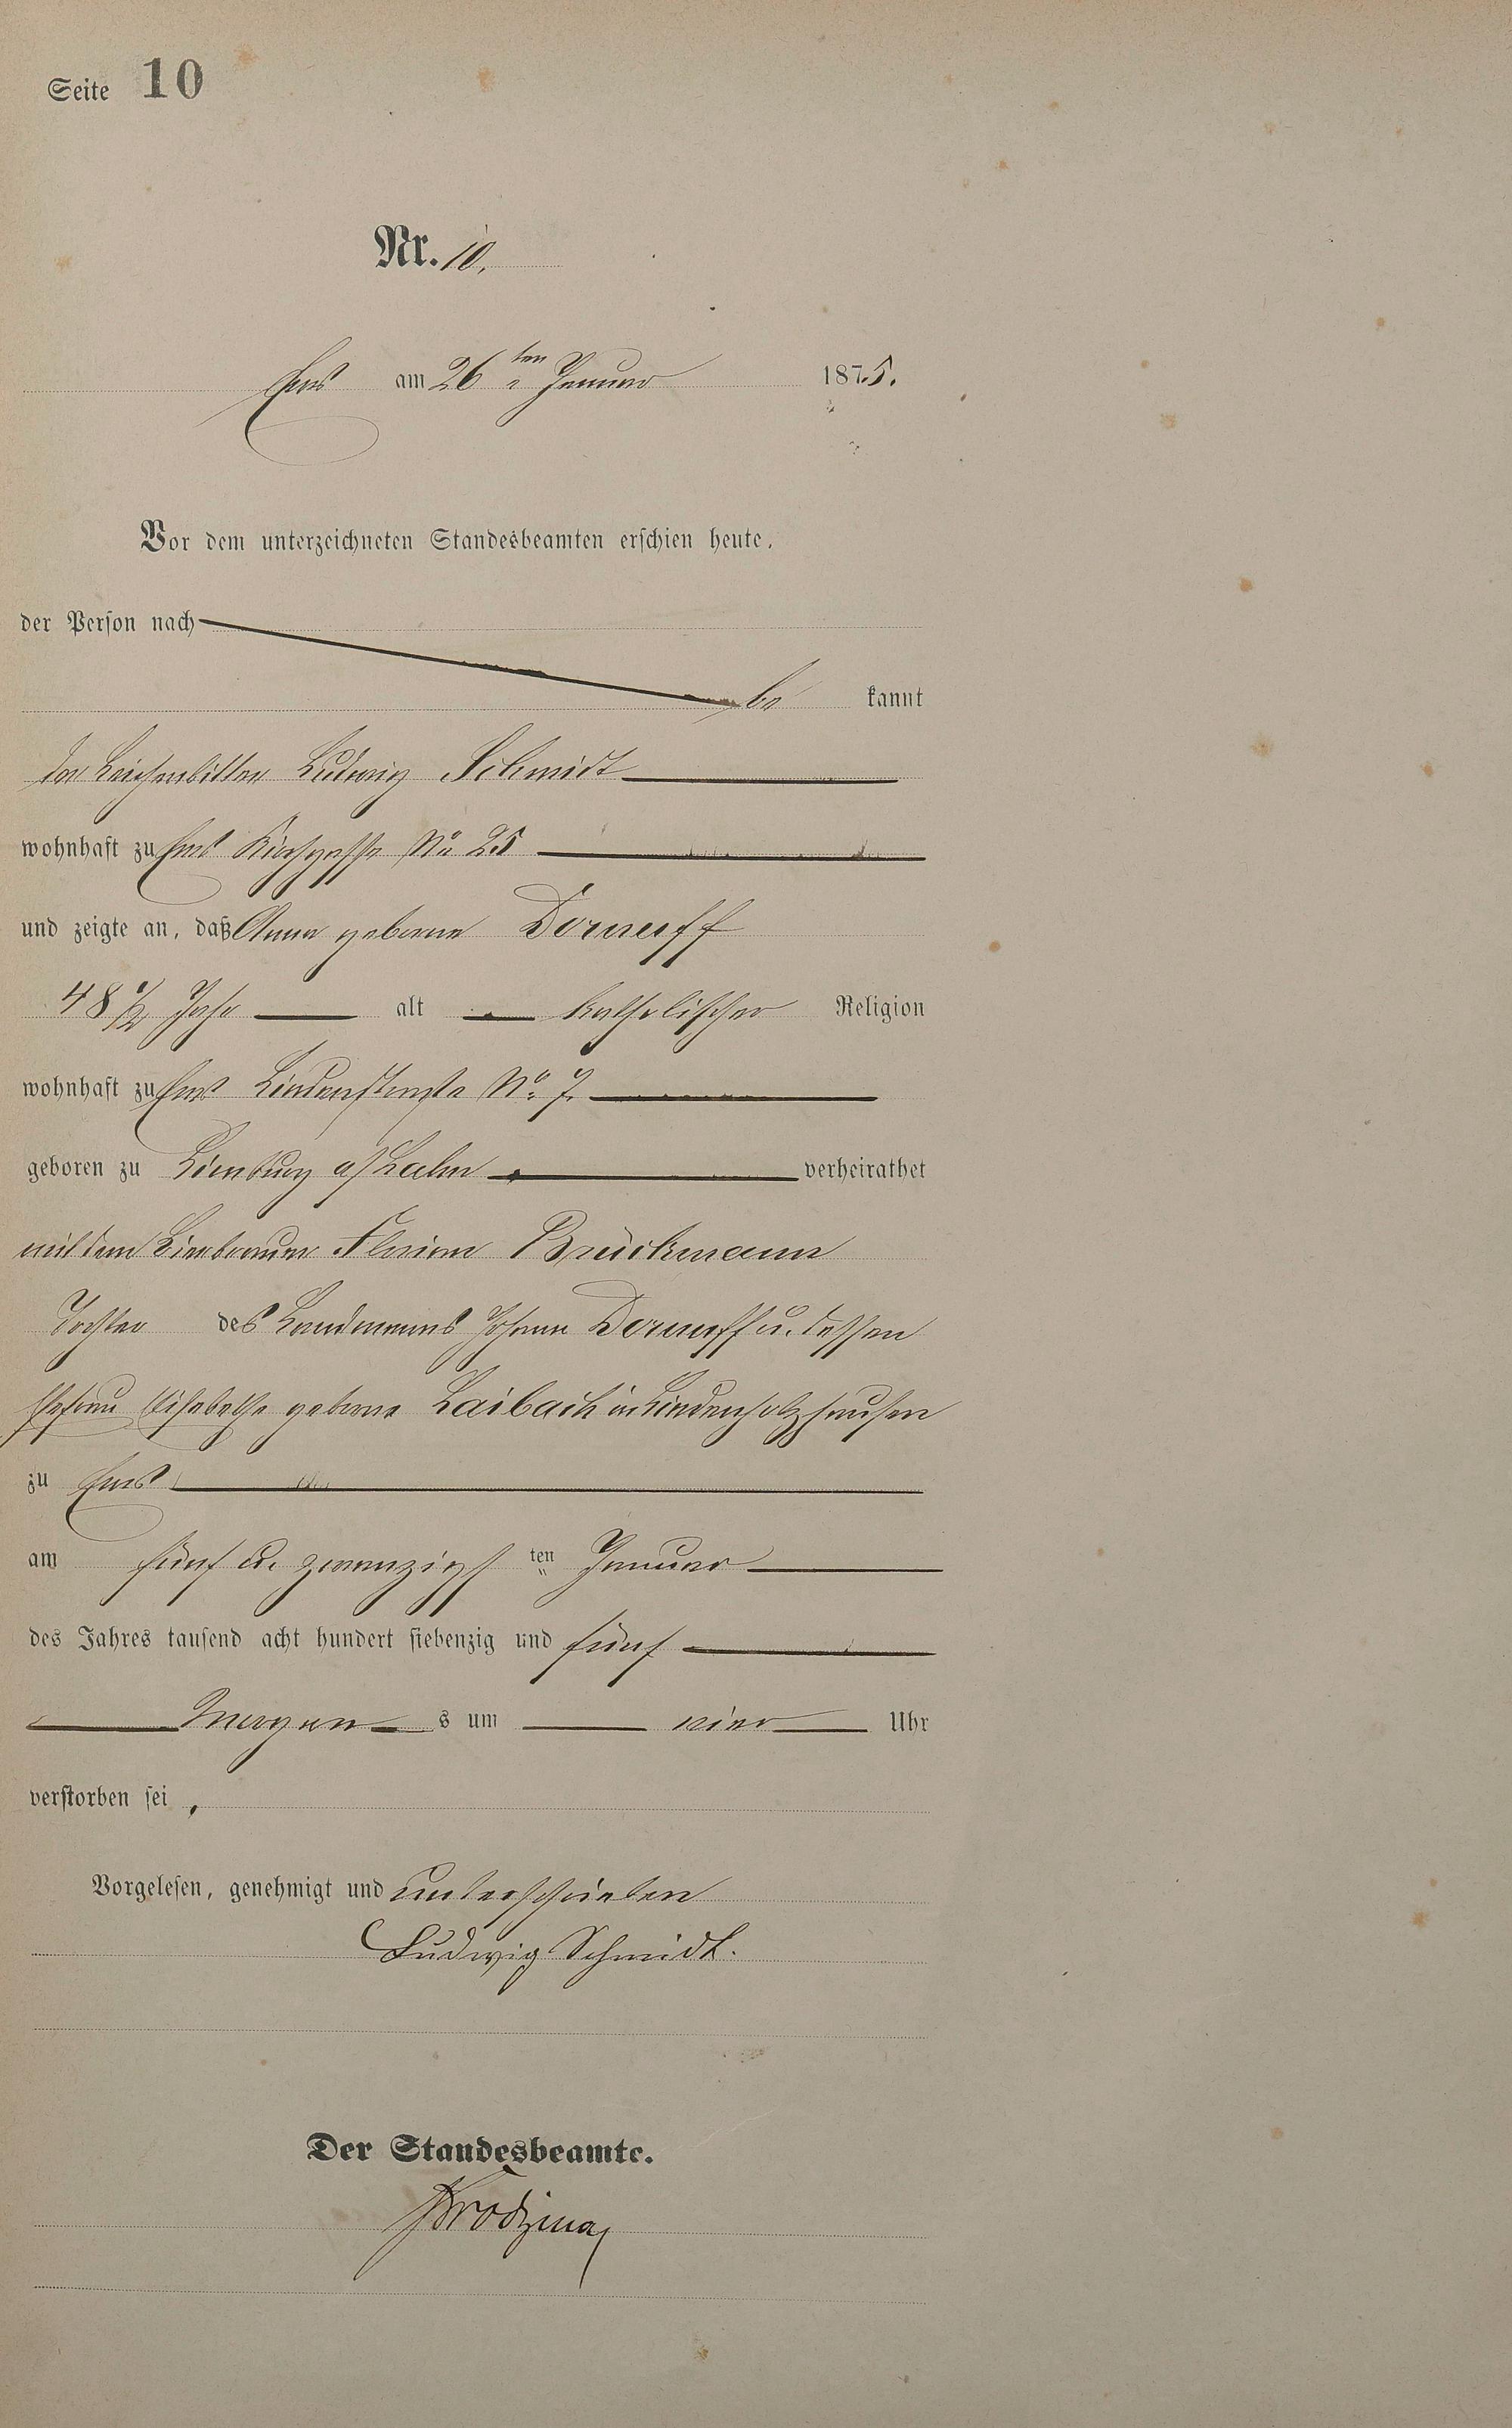 Seite 10
Nr. 10.
Ems am 26ten Januar 1875.
Vor dem unterzeichneten Standesbeamten erschien heute,
der Person nach
be kannt
der Leichenbitter Ludwig Schmidt
wohnhaft zu Ems Kirchgasse No 25
und zeigte an, daß Anna geborne Dornuff
48 1/2 Jahr alt katholischer Religion
wohnhaft zu Ems Lindenstraße No. 7.
geboren zu Limburg a/Lahn verheirathet
mit dem Bierbrauer Florian Brückmann
Tochter des Landmanns Johann Dornuff u. dessen
Ehefrau Elisabethe geborne Laibach in Lindenholzhausen
zu Ems
am fünf u. zwanzigsten Januar
des Jahres tausend acht hundert siebenzig und fünf
Morgens um vier Uhr
verstorben sei.
Vorgelesen, genehmigt und unterschrieben
Ludwig Schmidt.
Der Standesbeamte.